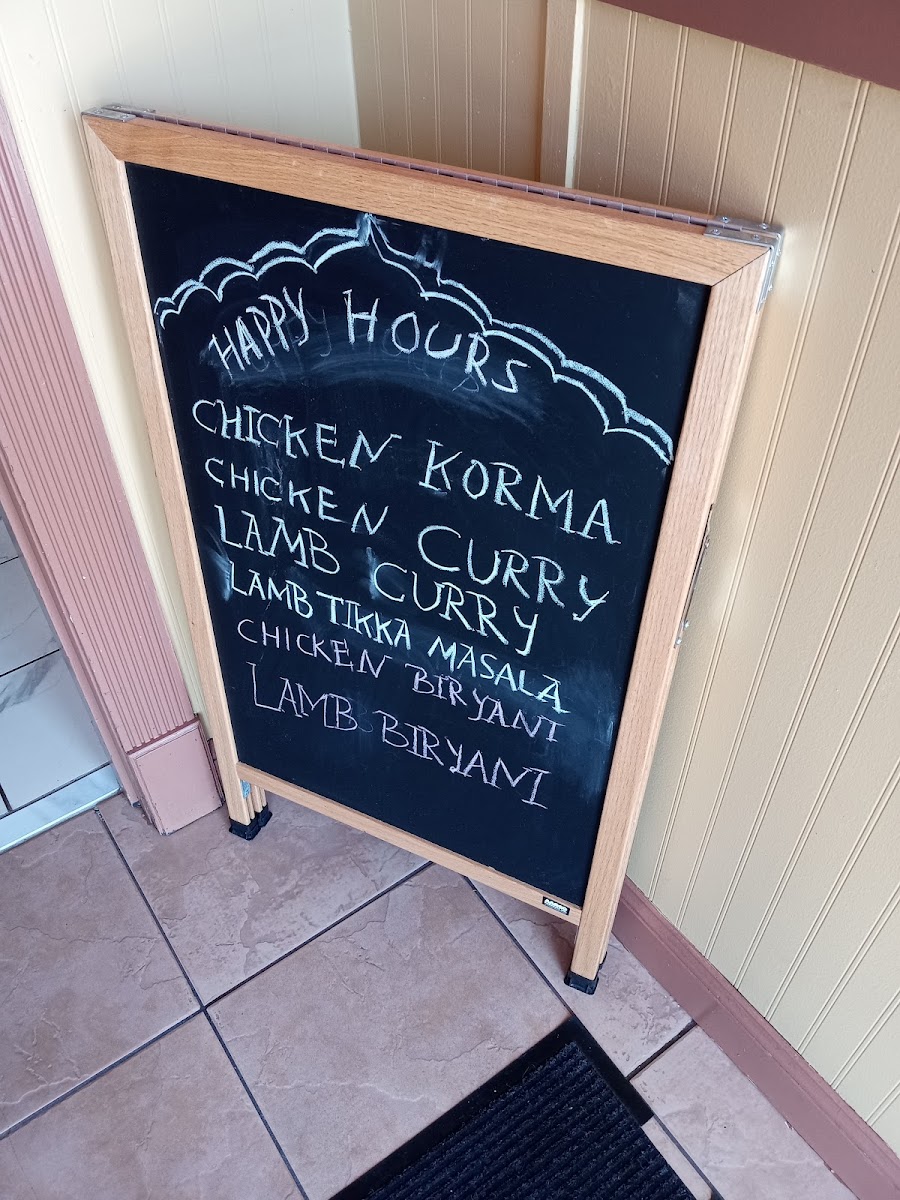 HAPPY HOURS
CHICKEN KORMA
CHICKEN CURRY
LAMB CURRY
LAMB TIKKA MASALA
CHICKEN BIRYANI
LAMB BIRYANI